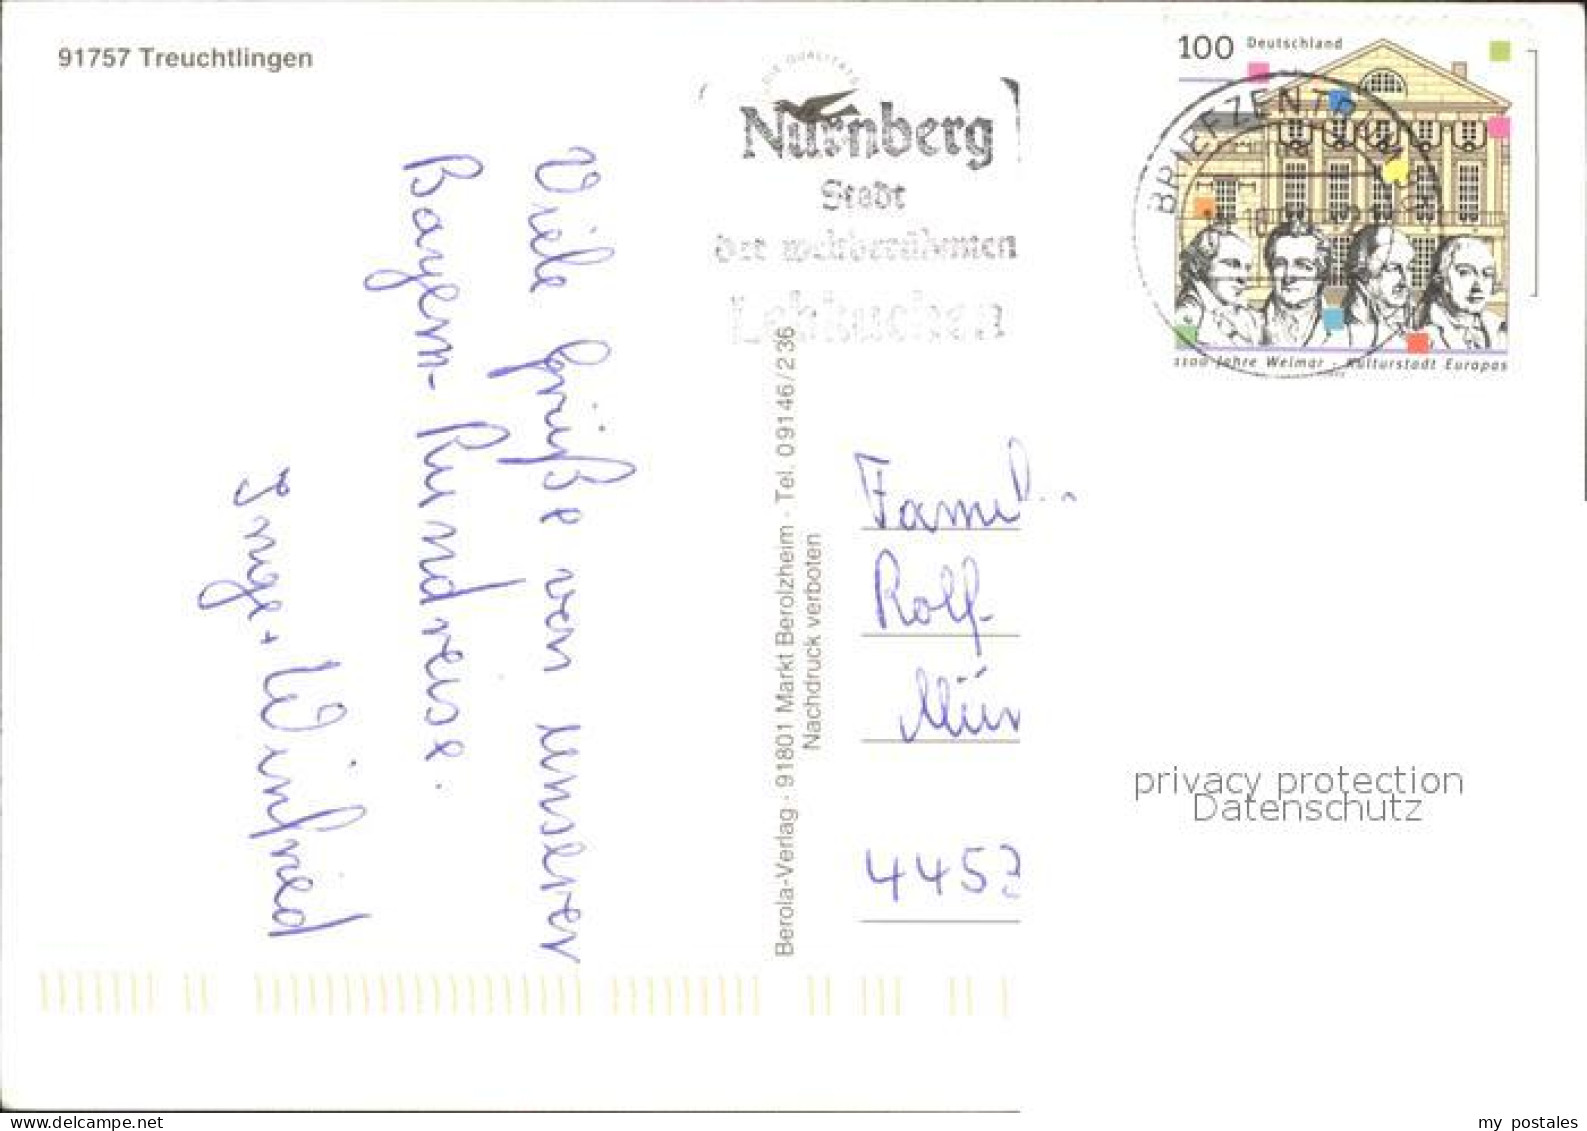 91757 Treuchtlingen
DIE QUALITÄTS
Nürnberg
Stadt
der weltberühmten
Lebkuchen
100 Deutschland
BRIEFZENTRUM
1100 Jahre Weimar - Kulturstadt Europas
Viele Grüße von unserer
Bayern-Rundreise.
Inge + Winfried
Berola-Verlag · 91801 Markt Berolzheim · Tel. 09146/236
Nachdruck verboten
Famili
Rolf
Mün
4453
privacy protection
Datenschutz
delcampe.net
my postales